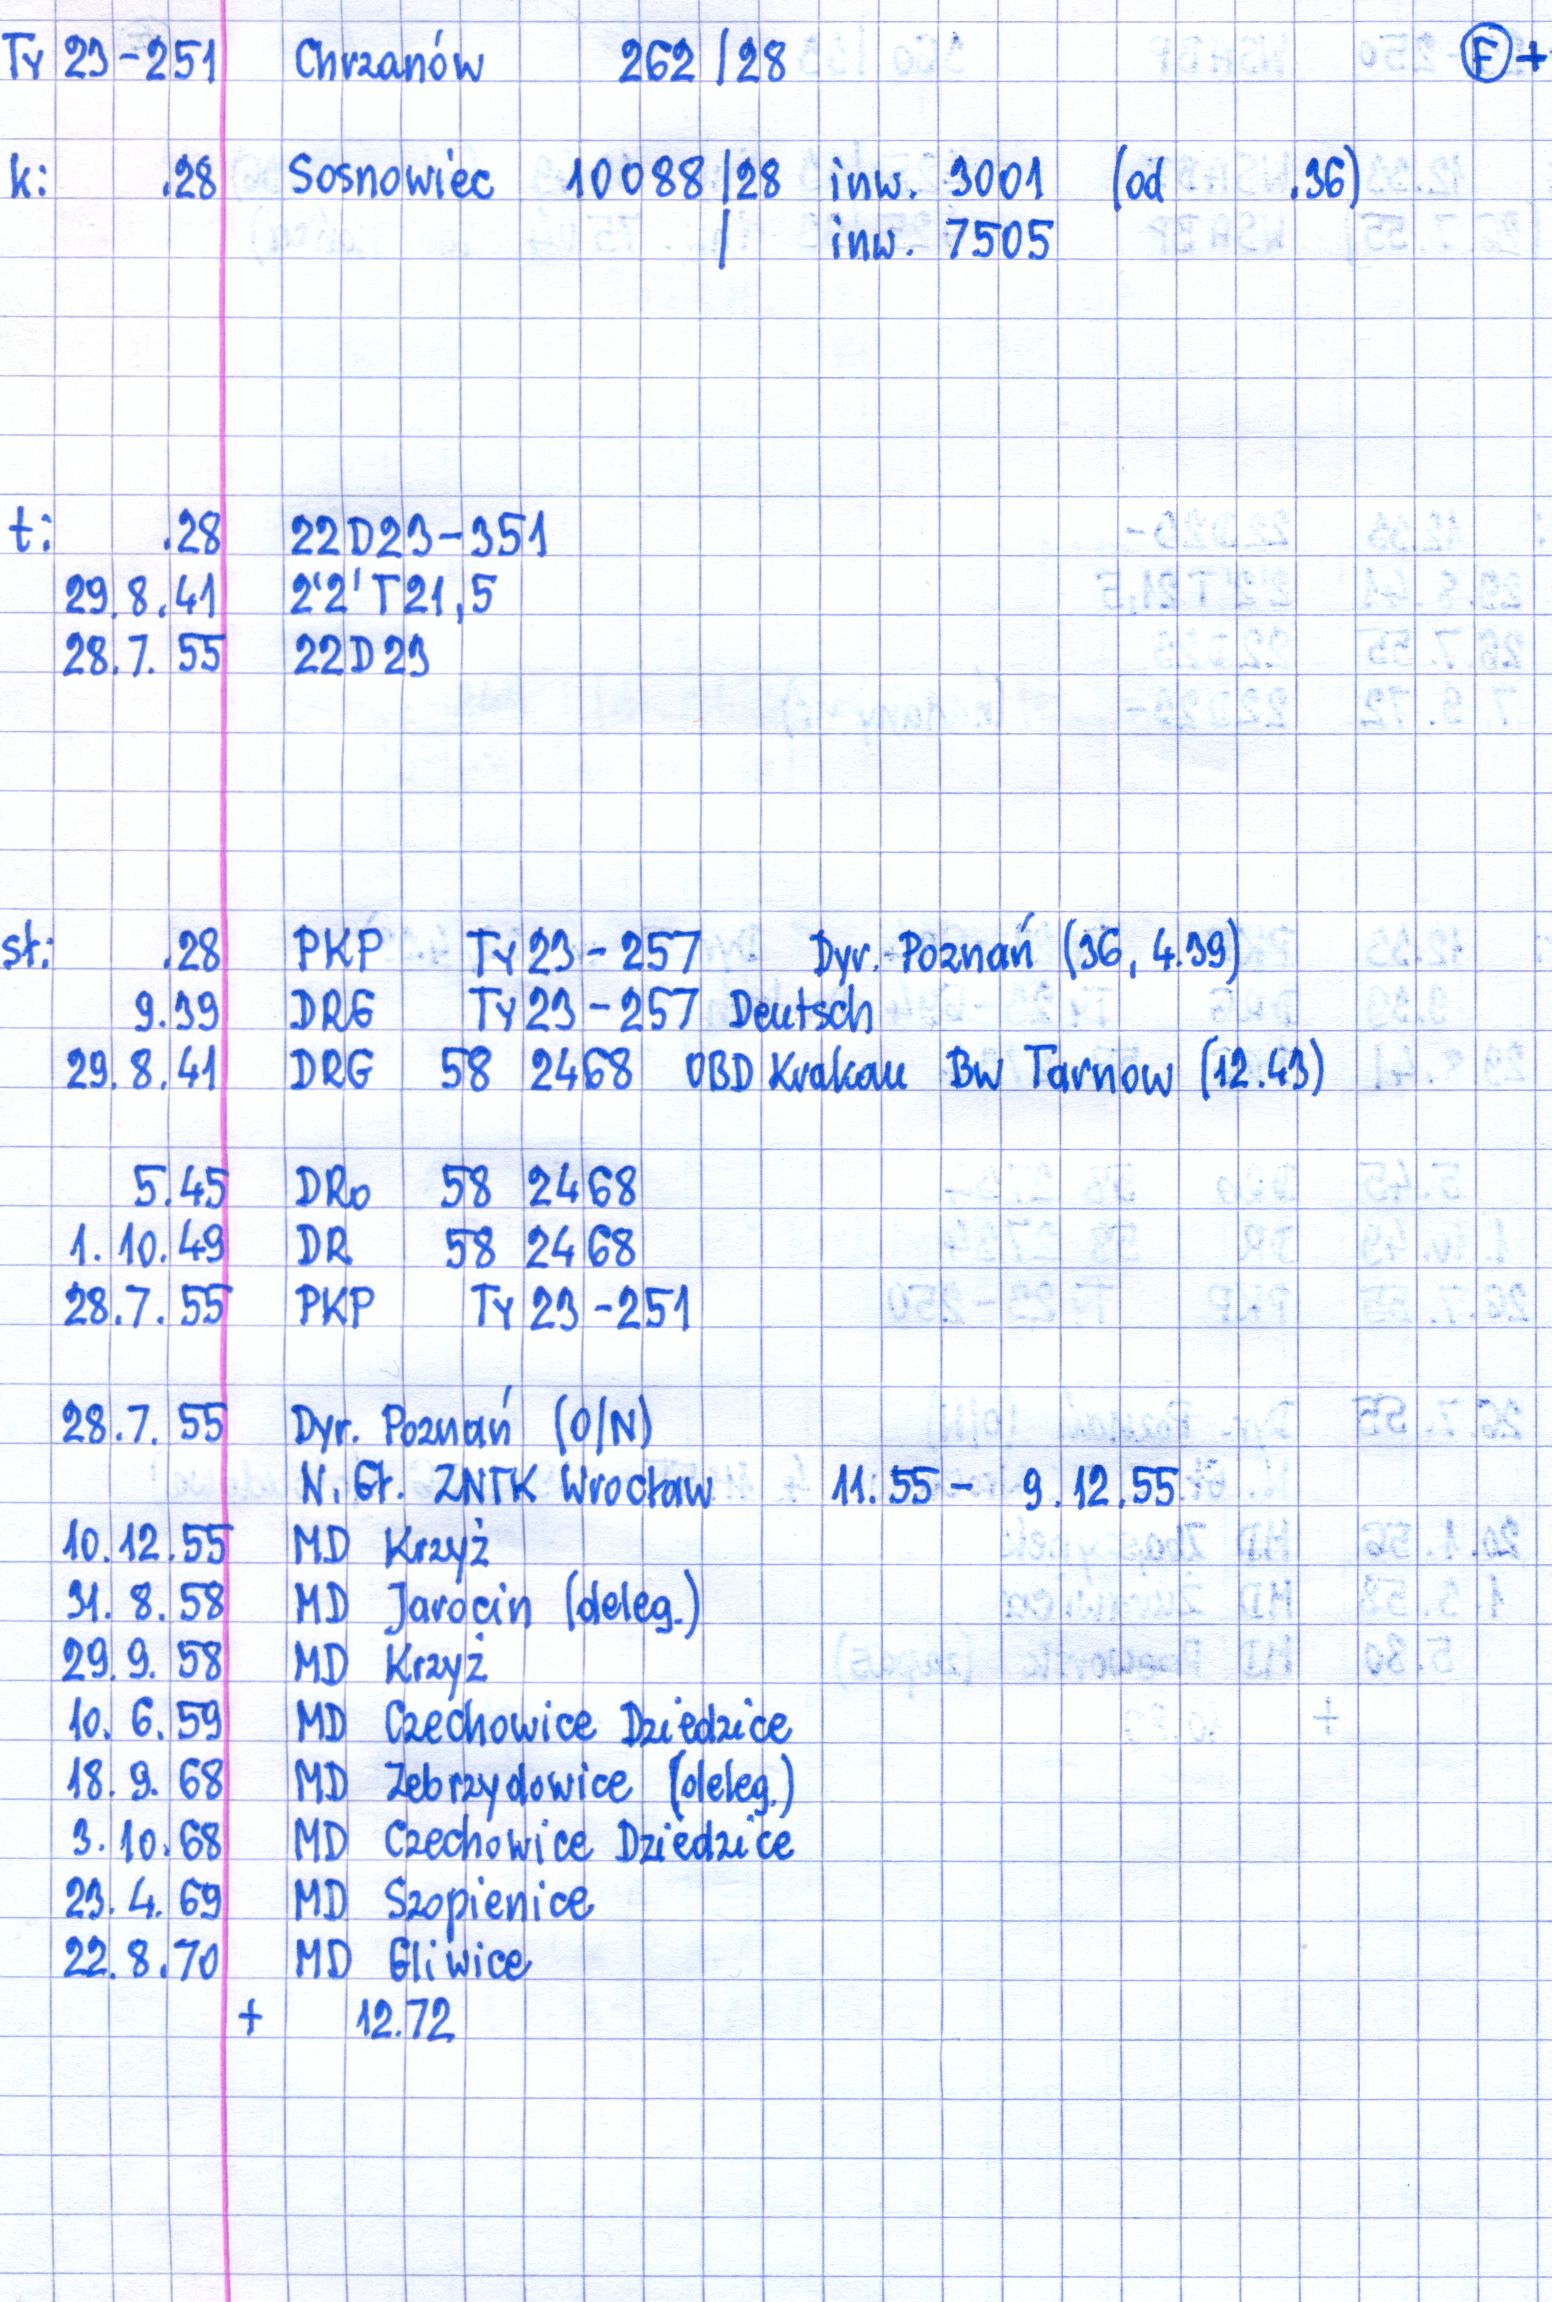 Ty 23-251 Chrzanów 262/28 F +
k: .28 Sosnowiec 10088/28 inw. 3001 (od .36)
/ inw. 7505
t: .28 22D23-351
29.8.41 2'2'T21,5
28.7.55 22D23
st: .28 PKP Ty23-257 Dyr. Poznań (36, 4.39)
9.39 DRG Ty23-257 Deutsch
29.8.41 DRG 58 2468 OBD Krakau Bw Tarnow (12.43)
5.45 DRo 58 2468
1.10.49 DR 58 2468
28.7.55 PKP Ty23-251
28.7.55 Dyr. Poznań (O/N)
N.Gł. ZNTK Wrocław 11.55 - 9.12.55
10.12.55 MD Krzyż
31.8.58 MD Jarocin (deleg.)
29.9.58 MD Krzyż
10.6.59 MD Czechowice Dziedzice
18.9.68 MD Zebrzydowice (deleg.)
3.10.68 MD Czechowice Dziedzice
23.4.69 MD Szopienice
22.8.70 MD Gliwice
+ 12.72